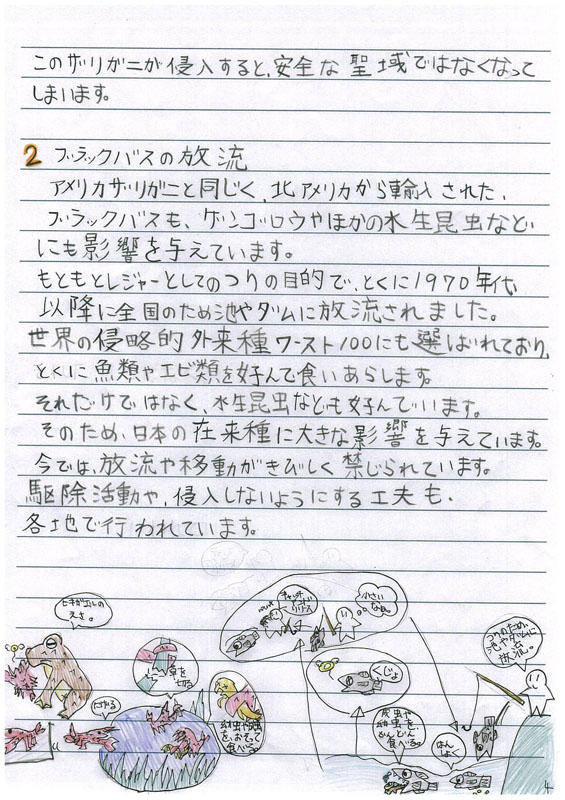 このザリガニが侵入すると、安全な聖域ではなくなって
しまいます。
2 ブラックバスの放流
アメリカザリガニと同じく、北アメリカから輸入された、
ブラックバスも、ゲンゴロウやほかの水生昆虫など
にも影響を与えています。
もともとレジャーとしてのつりの目的で、とくに1970年代
以降に全国のため池やダムに放流されました。
世界の侵略的外来種ワースト100にも選ばれており、
とくに魚類やエビ類を好んで食いあらします。
それだけではなく、水生昆虫なども好んでいます。
そのため、日本の在来種に大きな影響を与えています。
今では、放流や移動がきびしく禁じられています。
駆除活動や、侵入しないようにする工夫も、
各地で行われています。
ヒキガエルの
えさ。
にげる
草を
切る
幼虫や成虫
を、おそって
食べる。
キャッチ
アンド
リリース
小さい
なぁ。
くじょ
成虫や
幼虫を
どんどん
食べる。
はん
しょく
つりのため、
池やダムに
放流。
4